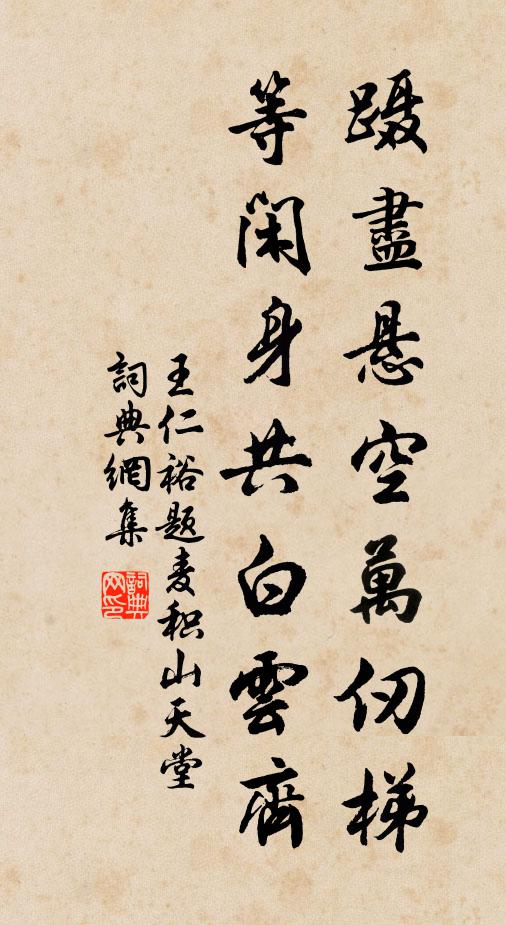 蹑盡悬空萬仞梯
等闲身共白雲齊
王仁裕题麦积山天堂
詞典網集
詞典网印